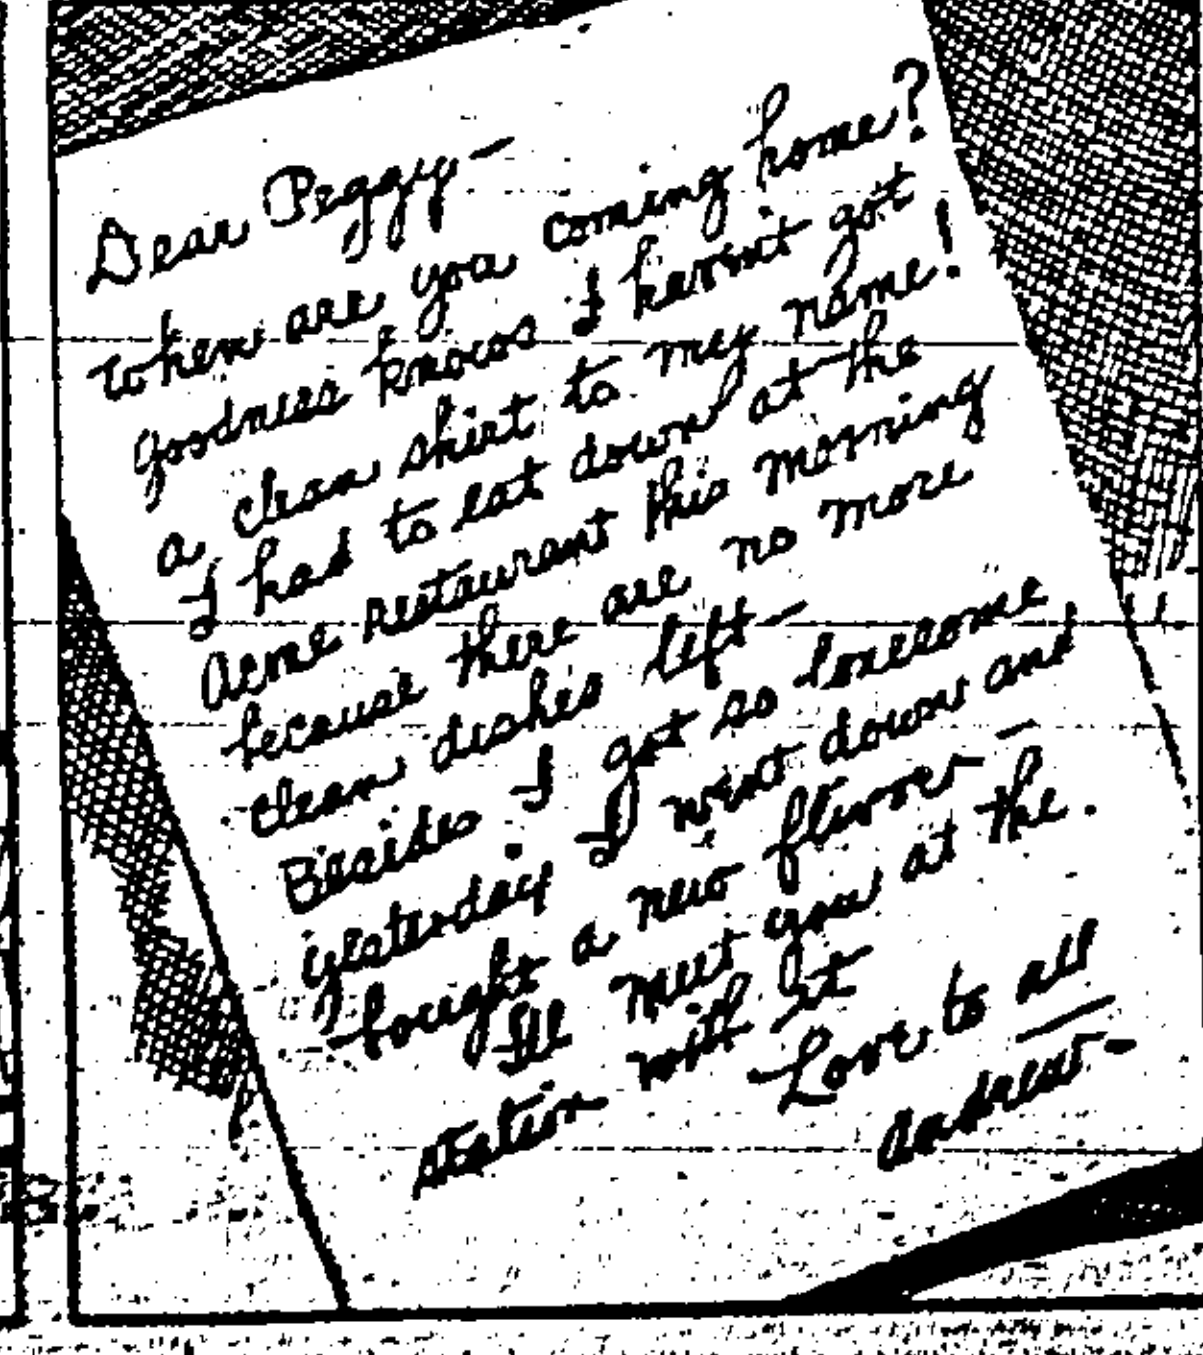 Dear Peggy-
when are you coming home?
goodness knows I havn't got
a clean shirt to my name!
I had to eat down at the
Acme restaurant this morning
because there are no more
clean dishes left-
Besides I got so lonesome
yesterday I went down and
bought a new flivver-
I'll meet you at the
station with it
Love to all
Andrew-